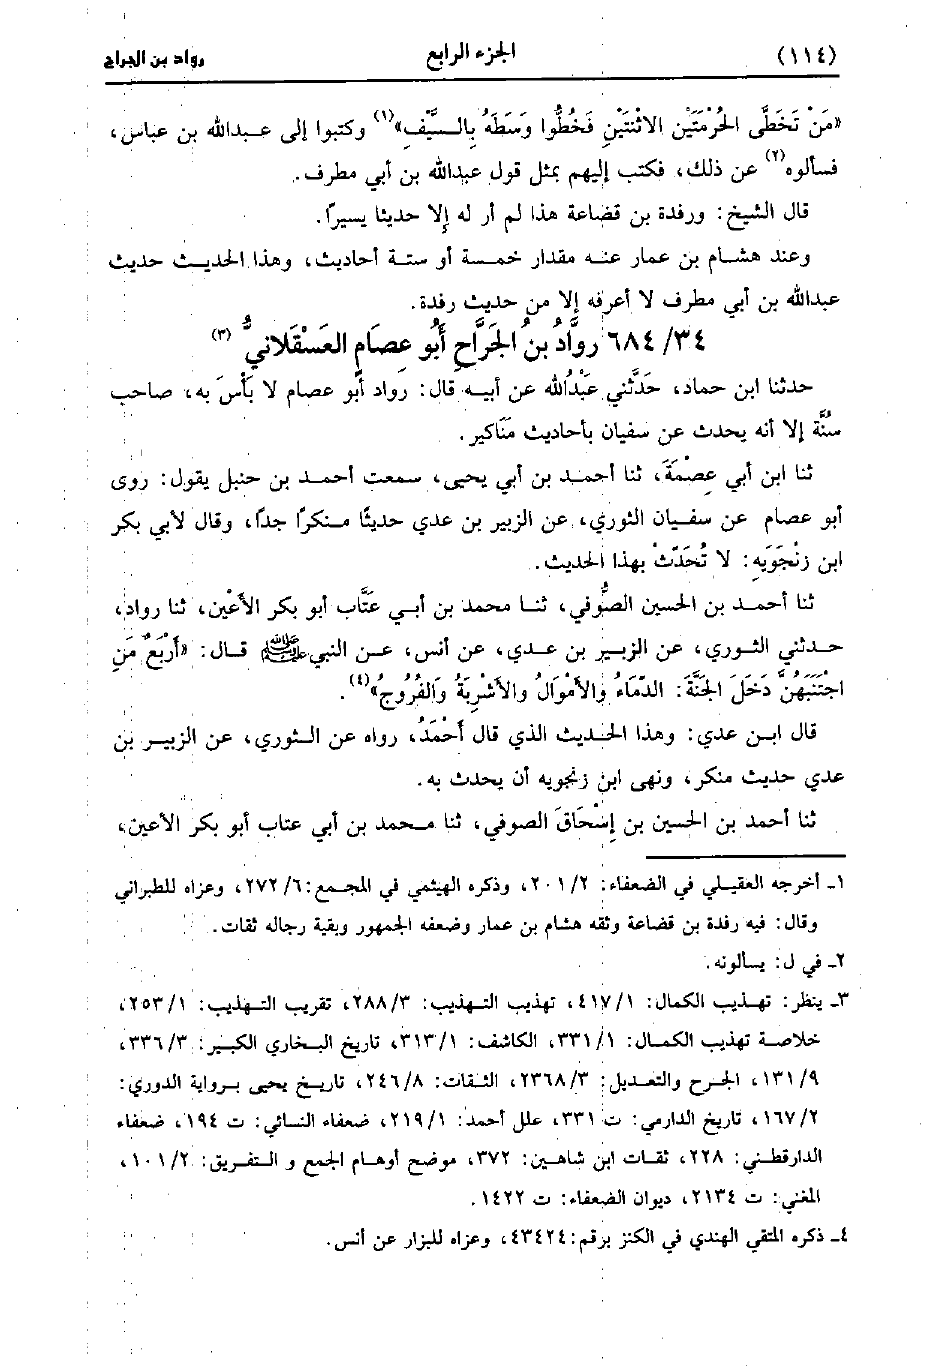 (١١٤) الجزء الرابع رواد بن الجراح
«مَنْ تَخَطَّى الحُرْمَتَيْنِ الاثْنَتَيْنِ فَخُطُّوا وَسَطَهُ بِالسَّيْفِ»(١) وكتبوا إلى عبدالله بن عباس،
فسألوه(٢) عن ذلك، فكتب إليهم بمثل قول عبدالله بن أبي مطرف.
قال الشيخ: ورفدة بن قضاعة هذا لم أر له إلا حديثا يسيرًا.
وعند هشام بن عمار عنه مقدار خمسة أو ستة أحاديث، وهذا الحديث حديث
عبدالله بن أبي مطرف لا أعرفه إلا من حديث رفدة.
٦٨٤/٣٤ روَّادُ بنُ الجَرَّاحِ أَبُو عِصَامٍ العَسْقَلانيُّ(٣)
حدثنا ابن حماد، حَدَّثني عَبْدُالله عن أبيه قال: رواد أَبو عصام لا بَأْسَ به، صاحب
سُنَّة إلا أنه يحدث عن سفيان بأحاديث مَنَاكير.
ثنا ابن أبي عِصْمَةَ، ثنا أحمد بن أبي يحيى، سمعت أحمد بن حنبل يقول: روى
أبو عصام عن سفيان الثوري، عن الزبير بن عدي حديثًا منكرًا جدًا، وقال لأبي بكر
ابن زنْجَوَيهِ: لا تُحَدِّثْ بهذا الحديث.
ثنا أحمد بن الحسين الصُّوفي، ثنا محمد بن أبي عَتَّاب أبو بكر الأعْين، ثنا رواد،
حدثني الثوري، عن الزبير بن عدي، عن أنس، عن النبي ﷺ قال: «أَرْبَعٌ مَنِ
اجْتَنَبَهُنَّ دَخَلَ الجَنَّةَ: الدِّمَاءُ والأَمْوَالُ والأَشْرِبَةُ وَالفُرُوجُ»(٤).
قال ابن عدي: وهذا الحديث الذي قال أَحْمَدُ، رواه عن الثوري، عن الزبير بن
عدي حديث منكر، ونهى ابن زنجويه أن يحدث به.
ثنا أحمد بن الحسين بن إسْحَاقَ الصوفي، ثنا محمد بن أبي عتاب أبو بكر الأعين،
١ـ أخرجه العقيلي في الضعفاء: ٢٠١/٢، وذكره الهيثمي في المجمع: ٢٧٢/٦، وعزاه للطبراني
وقال: فيه رفدة بن قضاعة وثقه هشام بن عمار وضعفه الجمهور وبقية رجاله ثقات.
٢ـ في ل: يسالونه.
٣ـ ينظر: تهذيب الكمال: ٤١٧/١، تهذيب التهذيب: ٢٨٨/٣، تقريب التهذيب: ٢٥٣/١،
خلاصة تهذيب الكمال: ٣٣١/١، الكاشف: ٣١٣/١، تاريخ البخاري الكبير: ٣٣٦/٣،
١٣١/٩، الجرح والتعديل: ٢٣٦٨/٣، الثقات: ٢٤٦/٨، تاريخ يحيى برواية الدوري:
١٦٧/٢، تاريخ الدارمي: ت ٣٣١، علل أحمد: ٢١٩/١، ضعفاء النسائي: ت ١٩٤، ضعفاء
الدارقطني: ٢٢٨، ثقات ابن شاهين: ٣٧٢، موضح أوهام الجمع و التفريق: ١٠١/٢،
المغني: ت ٢١٣٤، ديوان الضعفاء: ت ١٤٢٢.
٤ـ ذكره المتقي الهندي في الكنز برقم: ٤٣٤٢٤، وعزاه للبزار عن أنس.